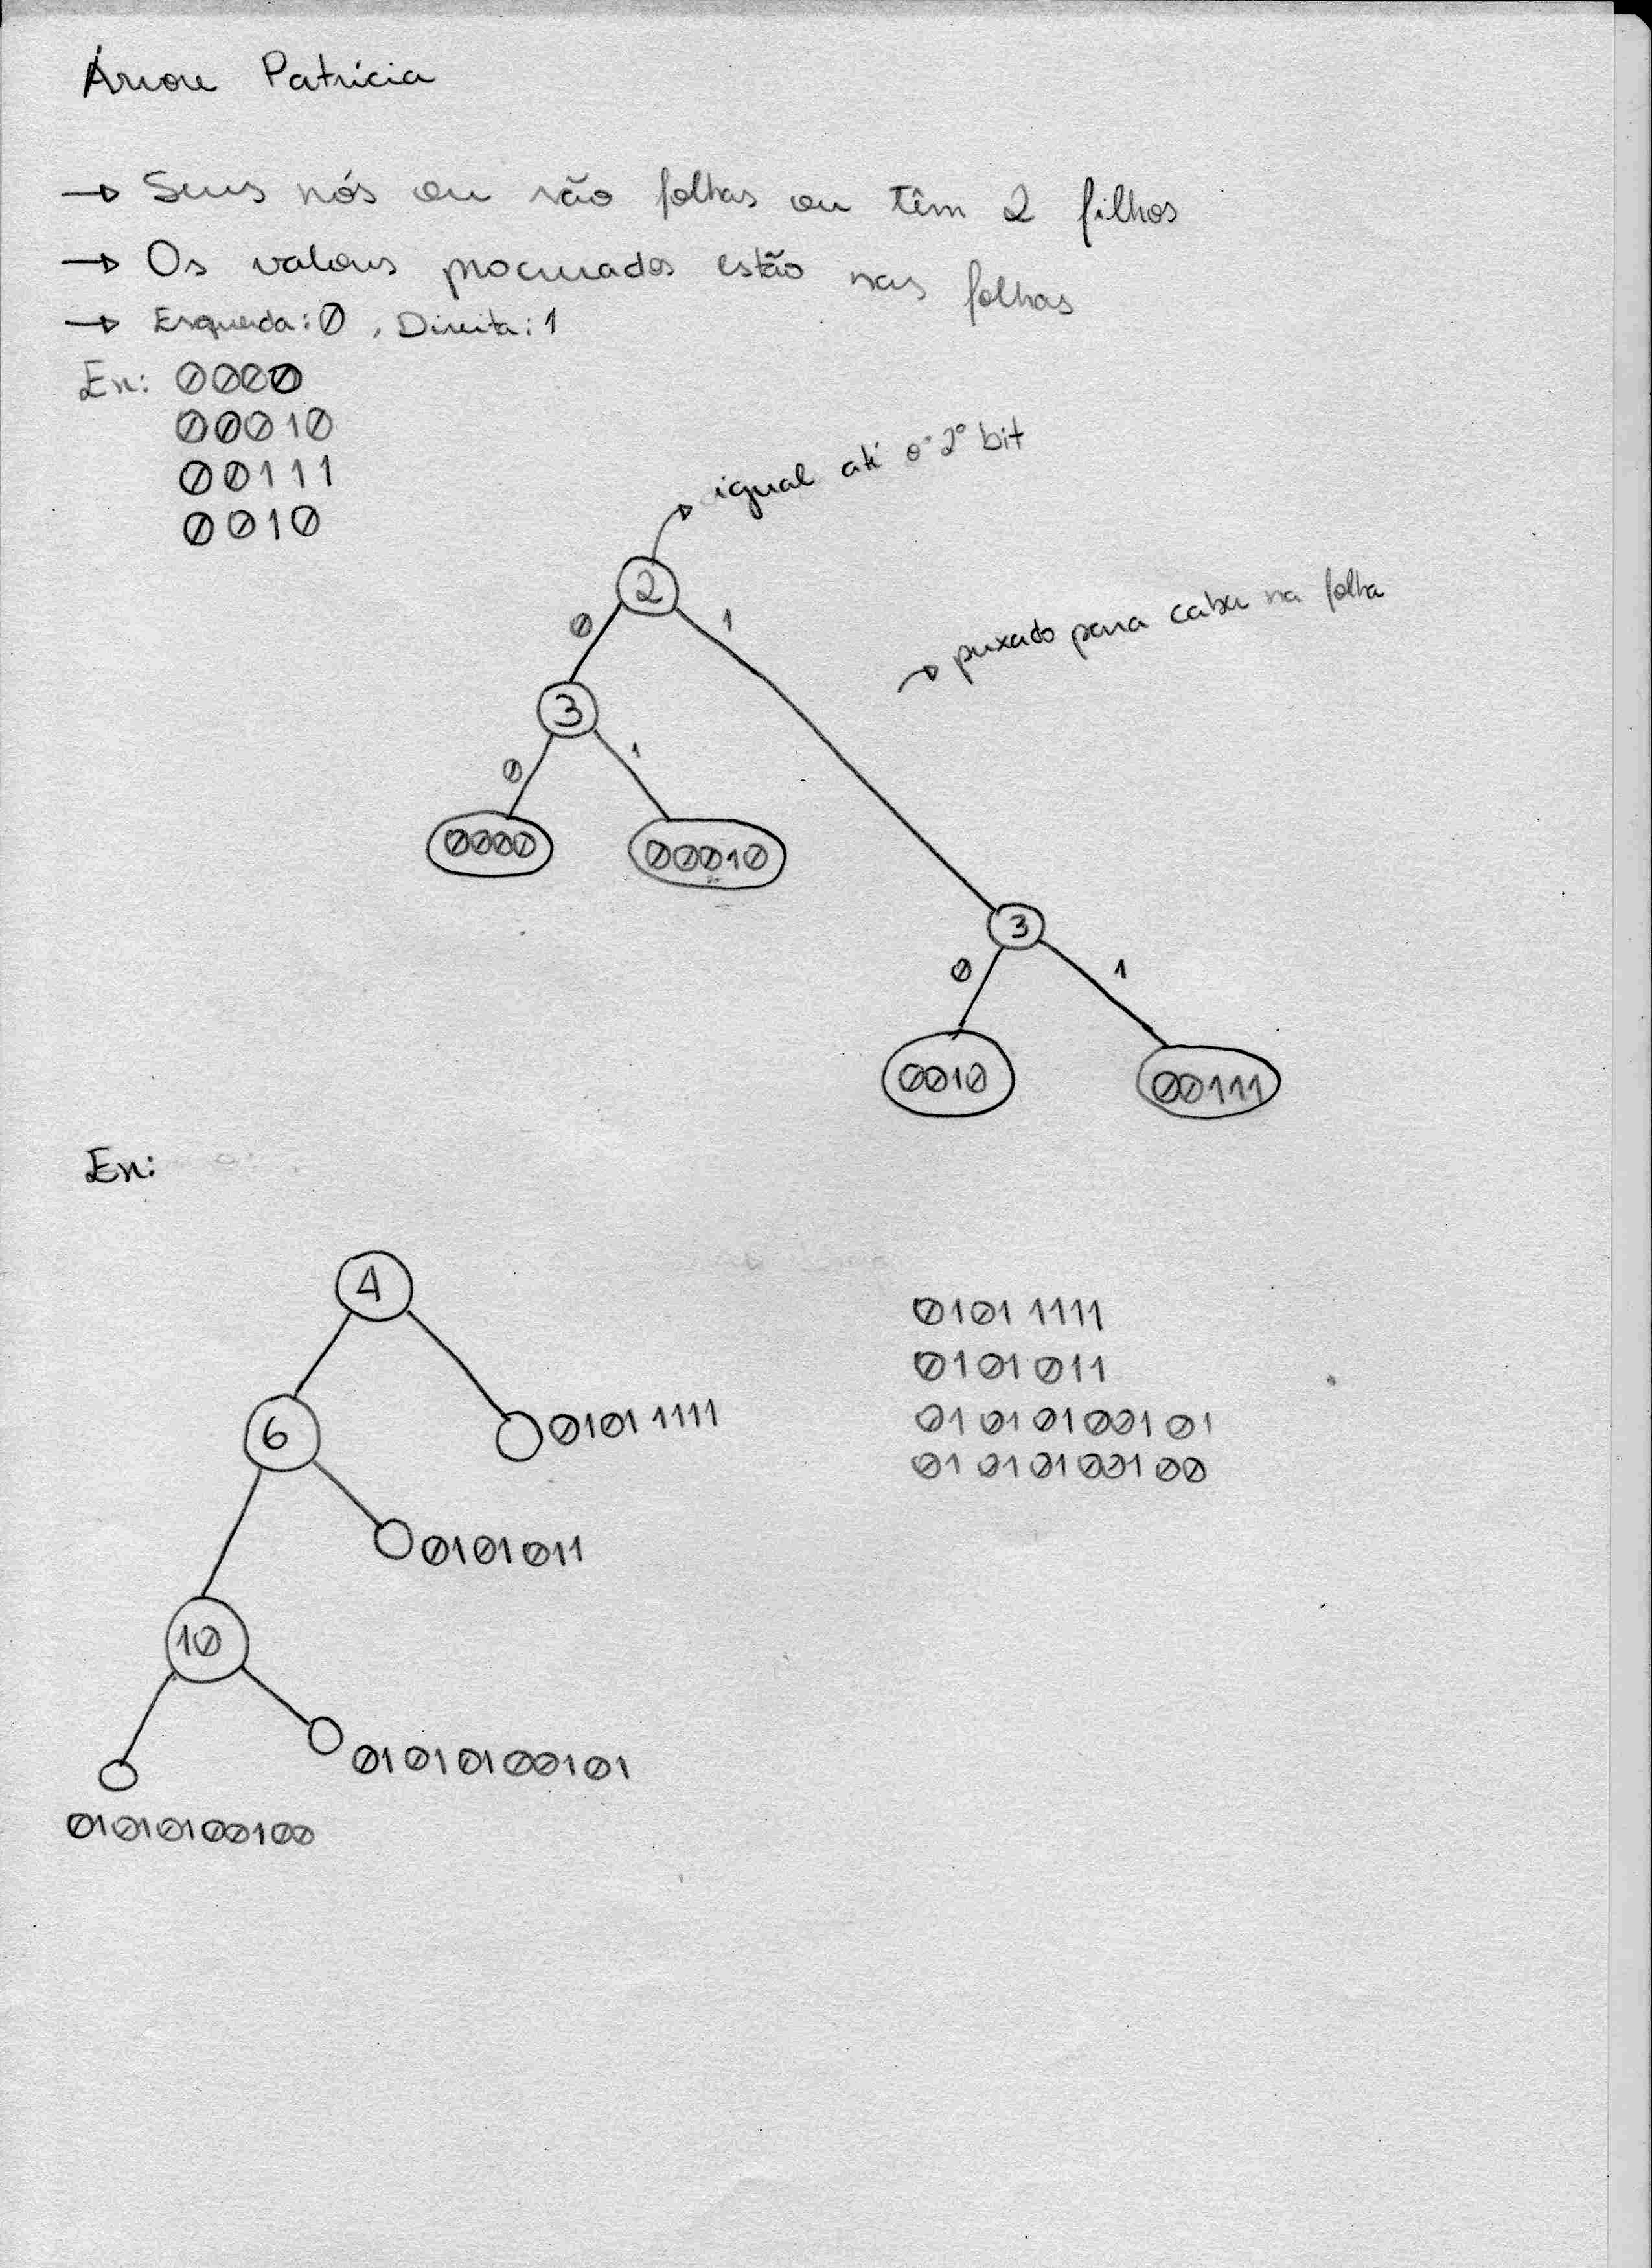 Árvore Patrícia
→ Seus nós ou são folhas ou têm 2 filhos
→ Os valores procurados estão nas folhas
→ Esquerda: 0, Direita: 1
Ex: 0000
00010
00111
0010
→ igual até o 2° bit
2
0 1
→ puxado para caber na folha
3
0 1
0000 00010
3
0 1
0010 00111
Ex:
4
01011111
0101011
01010100101
01010100100
6 01011111
0101011
10
01010100101
01010100100